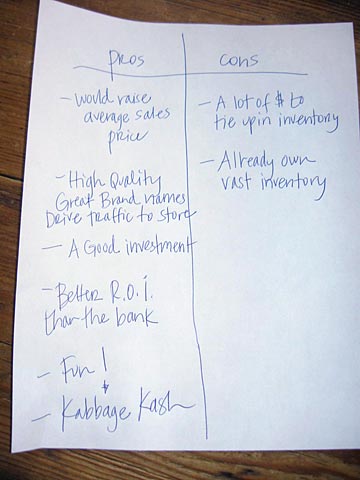 pros
- would raise
average sales
price
- High Quality
Great Brand names
Drive traffic to store
- A Good investment
- Better R.O.I.
than the bank
- Fun!
- Kabbage Kash
cons
- A lot of $ to
tie up in inventory
- Already own
vast inventory